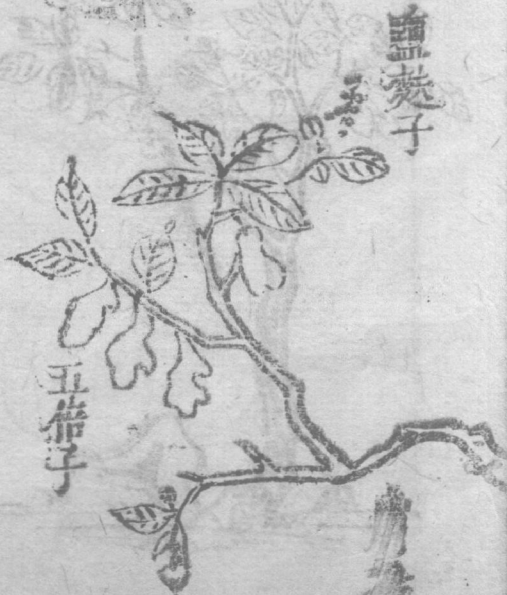 鹽麩子
五倍子